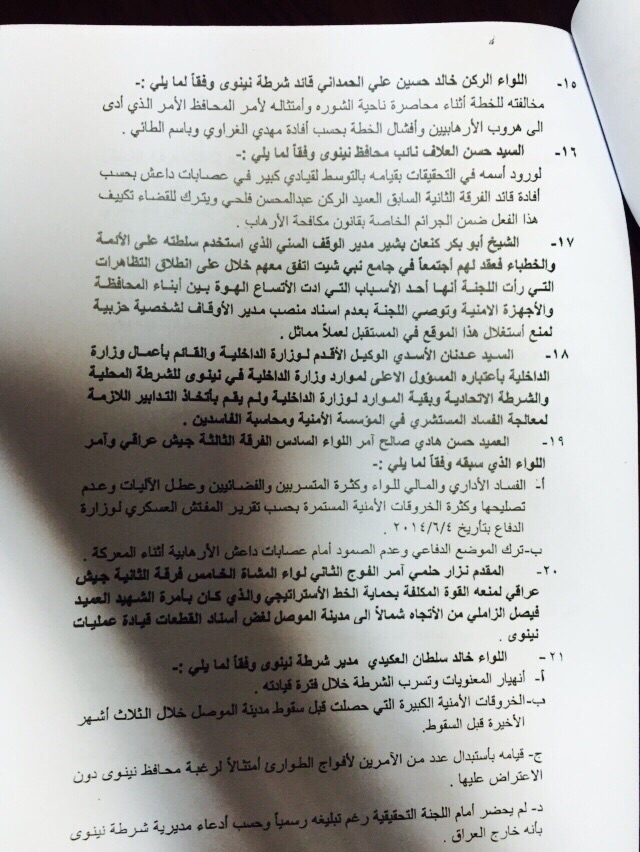 ١٥- اللواء الركن خالد حسين علي الحمداني قائد شرطة نينوى وفقاً لما يلي :-
مخالفته للخطة أثناء محاصرة ناحية الشوره وأمتثاله لأمر المحافظ الأمر الذي أدى
الى هروب الأرهابيين وأفشال الخطة بحسب أفادة مهدي الغراوي وباسم الطائي .
١٦- السيد حسن العلاف نائب محافظ نينوى وفقاً لما يلي :-
لورود أسمه في التحقيقات بقيامه بالتوسط لقيادي كبير في عصابات داعش بحسب
أفادة قائد الفرقة الثانية السابق العميد الركن عبدالمحسن فلحي ويترك للقضاء تكييف
هذا الفعل ضمن الجرائم الخاصة بقانون مكافحة الأرهاب .
١٧- الشيخ أبو بكر كنعان بشير مدير الوقف السني الذي استخدم سلطته على الأئمة
والخطباء فعقد لهم أجتمعاً في جامع نبي شيت اتفق معهم خلال على انطلاق التظاهرات
التي رأت اللجنة أنها أحد الأسباب التي ادت الأتساع الهوة بين أبناء المحافظة
والأجهزة الامنية وتوصي اللجنة بعدم اسناد منصب مدير الأوقاف لشخصية حزبية
لمنع أستغلال هذا الموقع في المستقبل لعملاً مماثل .
١٨- السيد عدنان الأسدي الوكيل الأقدم لوزارة الداخلية والقائم بأعمال وزارة
الداخلية بأعتباره المسؤول الاعلى لموارد وزارة الداخلية في نينوى للشرطة المحلية
والشرطة الاتحادية وبقية الموارد لوزارة الداخلية ولم يقم بأتخاذ التدابير اللازمة
لمعالجة الفساد المستشري في المؤسسة الأمنية ومحاسبة الفاسدين .
١٩- العميد حسن هادي صالح آمر اللواء السادس الفرقة الثالثة جيش عراقي وآمر
اللواء الذي سبقه وفقاً لما يلي :-
أ- الفساد الأداري والمالي للواء وكثرة المتسربين والفضائيين وعطل الآليات وعدم
تصليحها وكثرة الخروقات الأمنية المستمرة بحسب تقرير المفتش العسكري لوزارة
الدفاع بتأريخ ٢٠١٤/٦/٤ .
ب-ترك الموضع الدفاعي وعدم الصمود أمام عصابات داعش الأرهابية أثناء المعركة .
٢٠- المقدم نزار حلمي آمر الفوج الثاني لواء المشاة الخامس فرقة الثانية جيش
عراقي لمنعه القوة المكلفة بحماية الخط الأستراتيجي والذي كان بأمرة الشهيد العميد
فيصل الزاملي من الأتجاه شمالاً الى مدينة الموصل لغض أسناد القطعات قيادة عمليات
نينوى .
٢١- اللواء خالد سلطان العكيدي مدير شرطة نينوى وفقاً لما يلي :-
أ- أنهيار المعنويات وتسرب الشرطة خلال فترة قيادته .
ب-الخروقات الأمنية الكبيرة التي حصلت قبل سقوط مدينة الموصل خلال الثلاث أشهر
الأخيرة قبل السقوط.
ج- قيامه بأستبدال عدد من الآمرين لأفواج الطوارئ أمتثالاً لرغبة محافظ نينوى دون
الاعتراض عليها .
د- لم يحضر أمام اللجنة التحقيقية رغم تبليغه رسمياً وحسب أدعاء مديرية شرطة نينوى
بأنه خارج العراق .